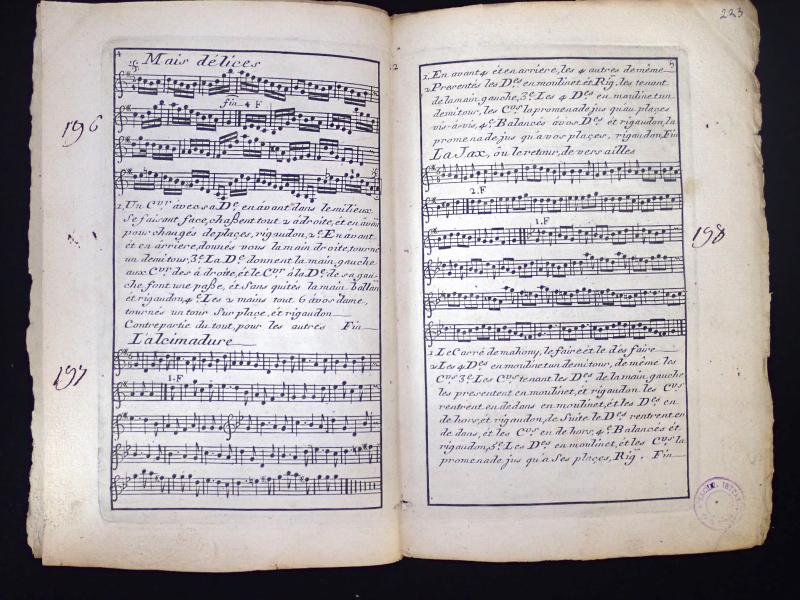 4
Mais délices
fin 4 F
196
1. Un Cvr avec sa De en avant dans le milieux
Se faisant face, chaßent tout 2 à droite, et en avan
pour changés de places, rigaudon, 2º En avant
et en arriere, donnés vous la main droite, tourne
un demi tour, 3º La De donnent la main gauche
aux Cvr des á droite, et le Cvr á la De de sa gau-
che, font une paße, et Sans quités la main ballan
et rigaudon, 4º Les 2 mains tout 6 á vos dame,
tournés un tour Sur plaçe, et rigaudon
Contrepartie du tout, pour les autres Fin
L'alcimadure
197
1. F
223
5
1. En avant 4 ét en arriere, les 4 autres de même
2. Presentés les Des en moulinet et Rig. les tenant
de la main gauche, 3º Les 4 Des en moulinet un
demi tour, les Cvrs la promenade jus qu'au plaçes
vis-á-vis, 4º Balancés á vos Des et rigaudon, la
promenade jus qu'a vos plaçes, rigaudon, Fin
La Jax, ôu le retour, de vers ailles
2. F
1. F
198
1 Le Carré de mahony, le faire ét le dés faire
2 Les 4 Des en moulinet un demi tour, de même les
Cvs 3º Les Cvs tenant les Des de la main gauche
les presentent en moulinet, ét rigaudon les Cvs
rentrent en de dans en moulinet, ét les Des en
de hors, ét rigaudon, de Suite le Des rentrent en
de dans, ét les Cvs en de hors, 4º Balancés ét
rigaudon, 5º Les Des en moulinet, ét les Cvs la
promenade jus qu'a Ses plaçes, Rig. Fin